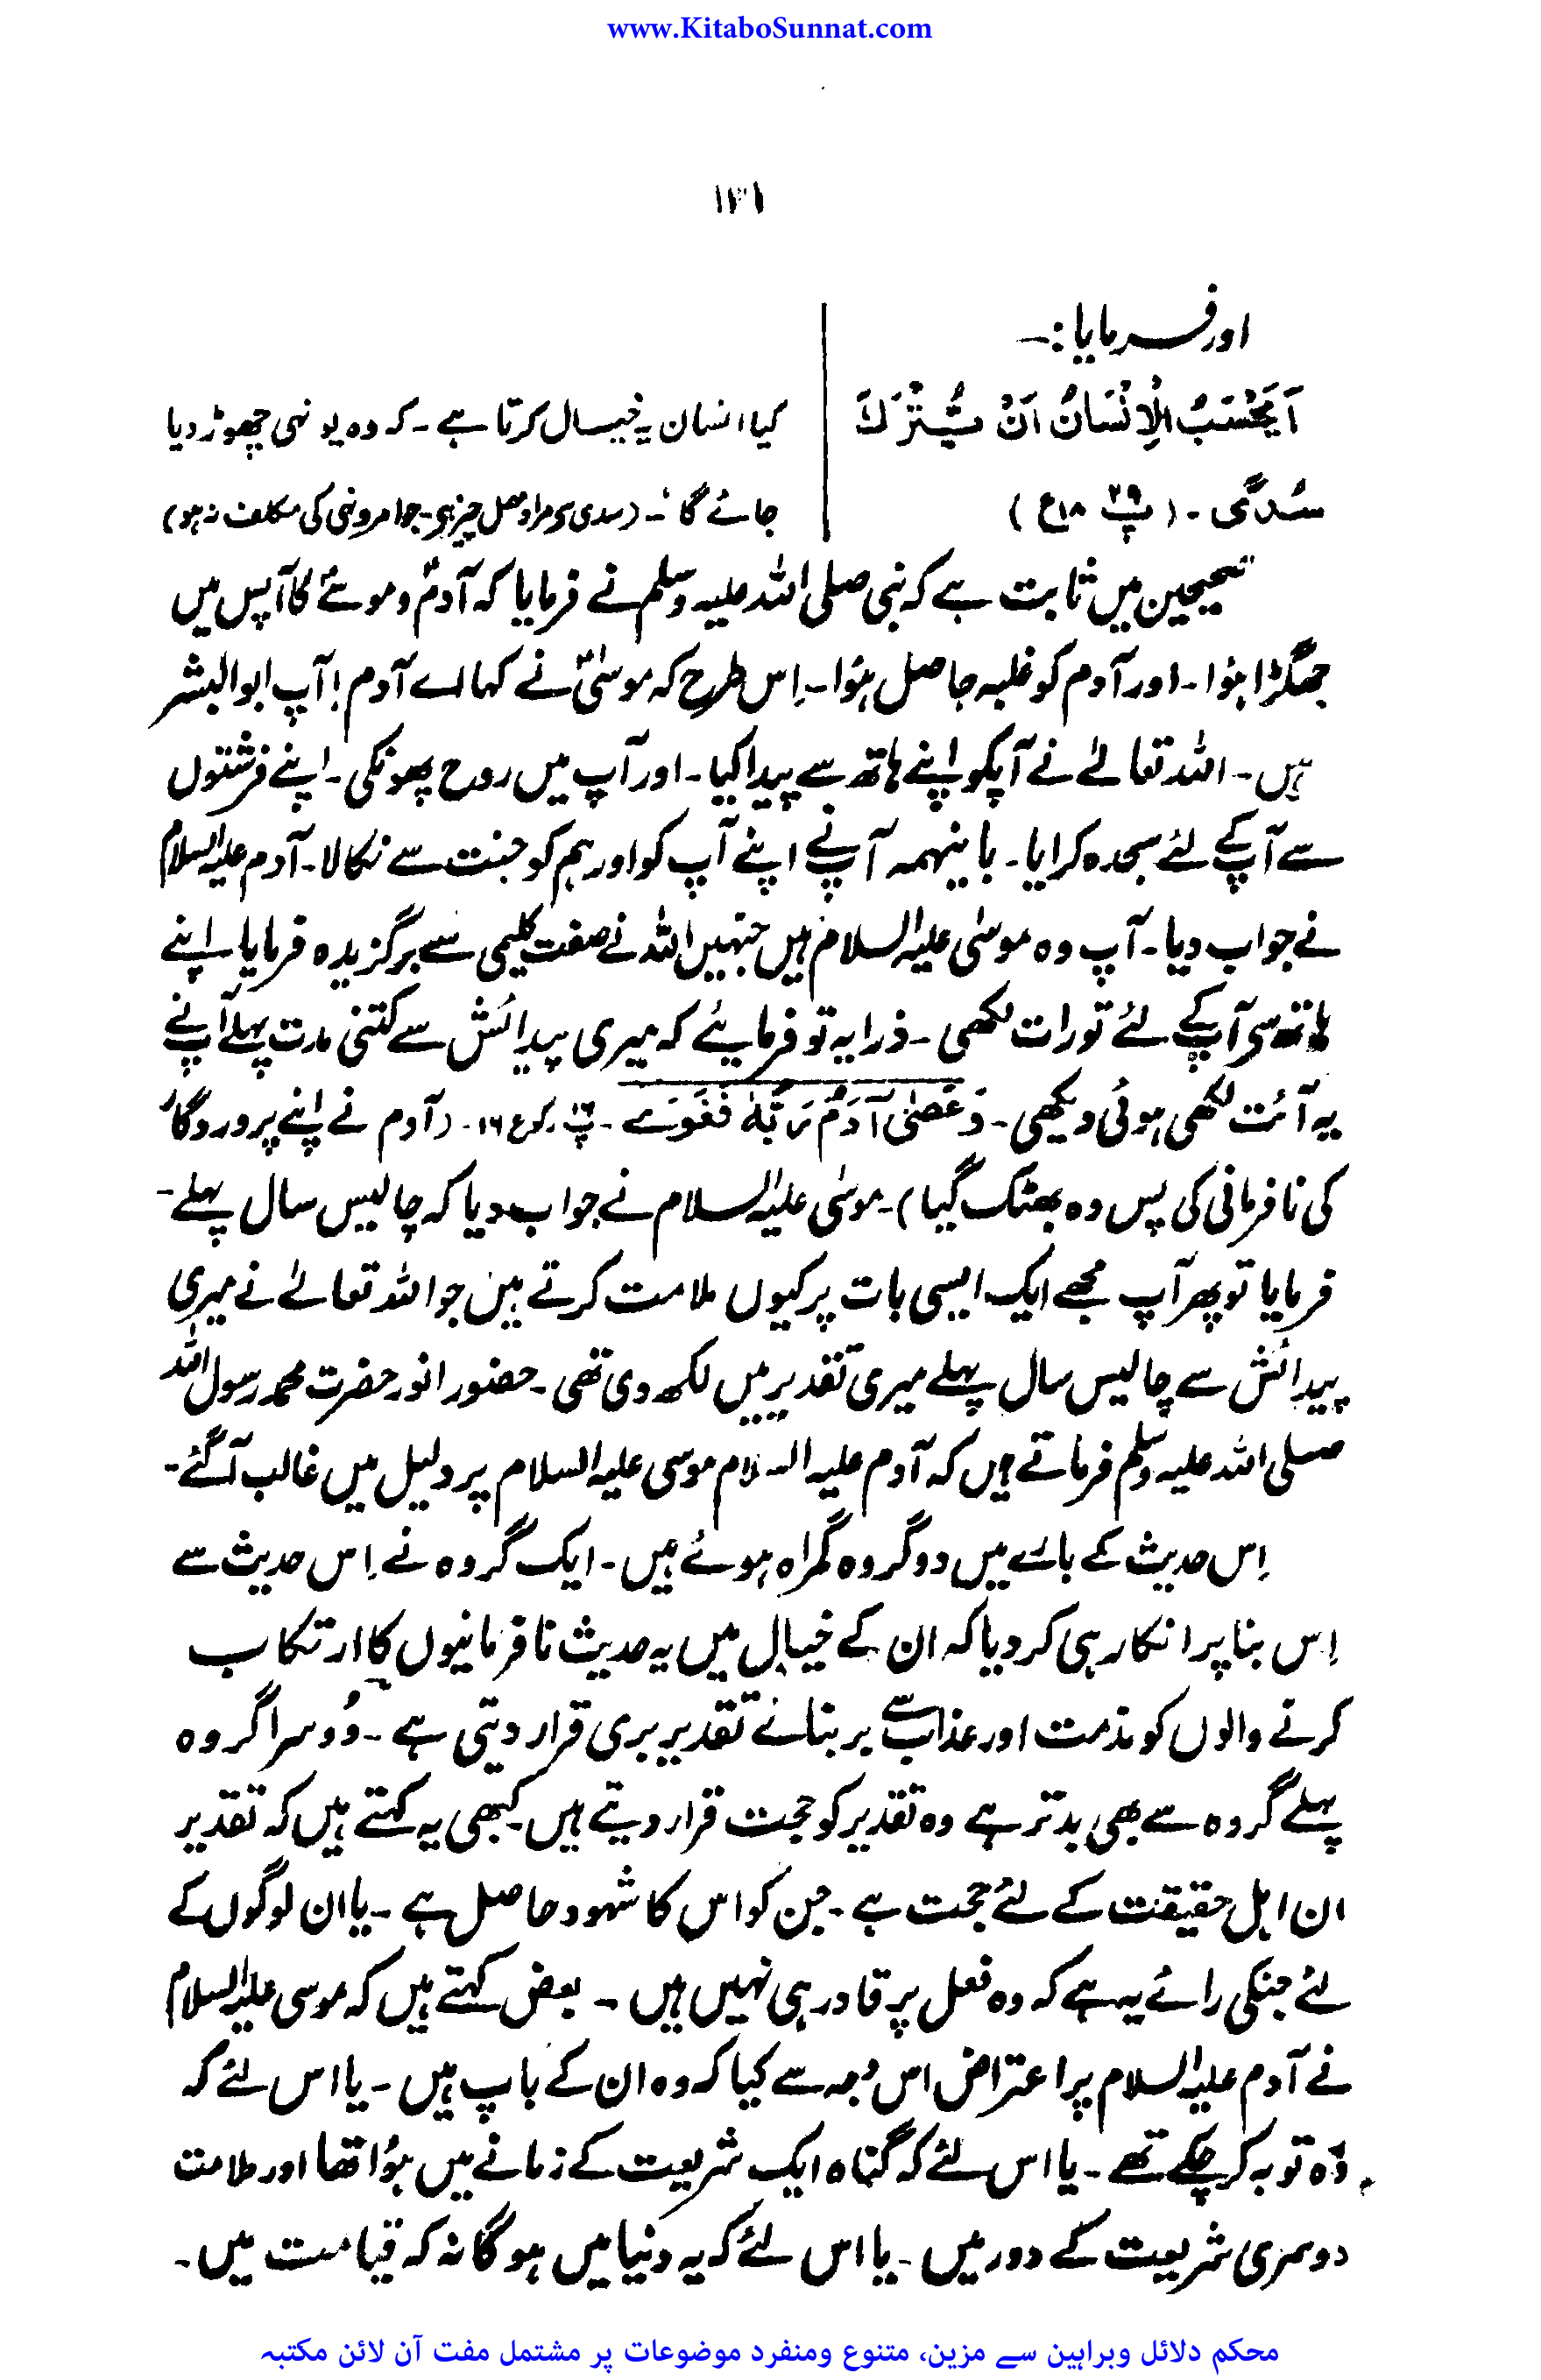 www.KitaboSunnat.com
۱۳۱
اور فرمایا :۔
اَیَحْسَبُ الْاِنْسَانُ اَنْ یُّتْرَکَ
سُدًی ۔ (پ ۲۹ ع ۱۸)
کیا انسان یہ خیال کرتا ہے ۔ کہ وہ یونہی چھوڑ دیا
جائے گا ۔ (سدی سے مراد مہمل چیز ہے ۔ جو امر و نہی کی مکلف نہ ہو)
صحیحین میں ثابت ہے کہ نبی صلی اللہ علیہ وسلم نے فرمایا کہ آدمؑ و موسےٰؑ کا آپس میں
جھگڑا ہؤا ۔ اور آدم کو غلبہ حاصل ہؤا ۔ اِس طرح کہ موسیٰؑ نے کہا اے آدم ! آپ ابوالبشر
ہیں ۔ اللہ تعالےٰ نے آپکو اپنے ہاتھ سے پیدا کیا ۔ اور آپ میں روح پھونکی ۔ اپنے فرشتوں
سے آپ کے لئے سجدہ کرایا ۔ باینہمہ آپ نے اپنے آپ کو اور ہم کو جنت سے نکالا ۔ آدم علیہ السلام
نے جواب دیا ۔ آپ وہ موسیٰ علیہ السلام ہیں جنہیں اللہ نے صفت کلیمی سے برگزیدہ فرمایا ۔ اپنے
ہاتھ سے آپ کے لئے تورات لکھی ۔ ذرا یہ تو فرمایئے کہ میری پیدائش سے کتنی مدت پہلے آپ نے
یہ آئت لکھی ہوئی دیکھی ۔ وَعَصٰی آدَمُ رَبَّہٗ فَغَوٰے ۔ پ ۱۶ رکوع ۱۶ ۔ (آدم نے اپنے پروردگار
کی نافرمانی کی پس وہ بھٹک گیا) ۔ موسیٰ علیہ السلام نے جواب دیا کہ چالیس سال پہلے ۔
فرمایا تو پھر آپ مجھے ایک ایسی بات پر کیوں ملامت کرتے ہیں جو اللہ تعالےٰ نے میری
پیدائش سے چالیس سال پہلے میری تقدیر میں لکھ دی تھی ۔ حضور انور حضرت محمد رسول اللہ
صلی اللہ علیہ وسلم فرماتے ہیں کہ آدم علیہ السلام موسی علیہ السلام پر دلیل میں غالب آگئے ۔
اِس حدیث کے بارے میں دو گروہ گمراہ ہوئے ہیں ۔ ایک گروہ نے اِس حدیث سے
اِس بنا پر انکار ہی کر دیا کہ ان کے خیال میں یہ حدیث نافرمانیوں کا ارتکاب
کرنے والوں کو مذمت اور عذاب سے بربنائے تقدیر بری قرار دیتی ہے ۔ دُوسرا گروہ
پہلے گروہ سے بھی بدتر ہے وہ تقدیر کو حجت قرار دیتے ہیں ۔ کبھی یہ کہتے ہیں کہ تقدیر
ان اہل حقیقت کے لئے حجت ہے ۔ جن کو اس کا شہود حاصل ہے ۔ یا ان لوگوں کے
لئے جنکی رائے یہ ہے کہ وہ فعل پر قادر ہی نہیں ہیں ۔ بعض کہتے ہیں کہ موسی علیہ السلام
نے آدم علیہ السلام پر اعتراض اس وجہ سے کیا کہ وہ ان کے باپ ہیں ۔ یا اس لئے کہ
وُہ توبہ کر چکے تھے ۔ یا اس لئے کہ گناہ ایک شریعت کے زمانے میں ہؤا تھا اور ملامت
دوسری شریعت کے دور میں ۔ یا اس لئے کہ یہ دنیا میں ہوگا نہ کہ قیامت میں ۔
محکم دلائل وبراہین سے مزین، متنوع ومنفرد موضوعات پر مشتمل مفت آن لائن مکتبہ